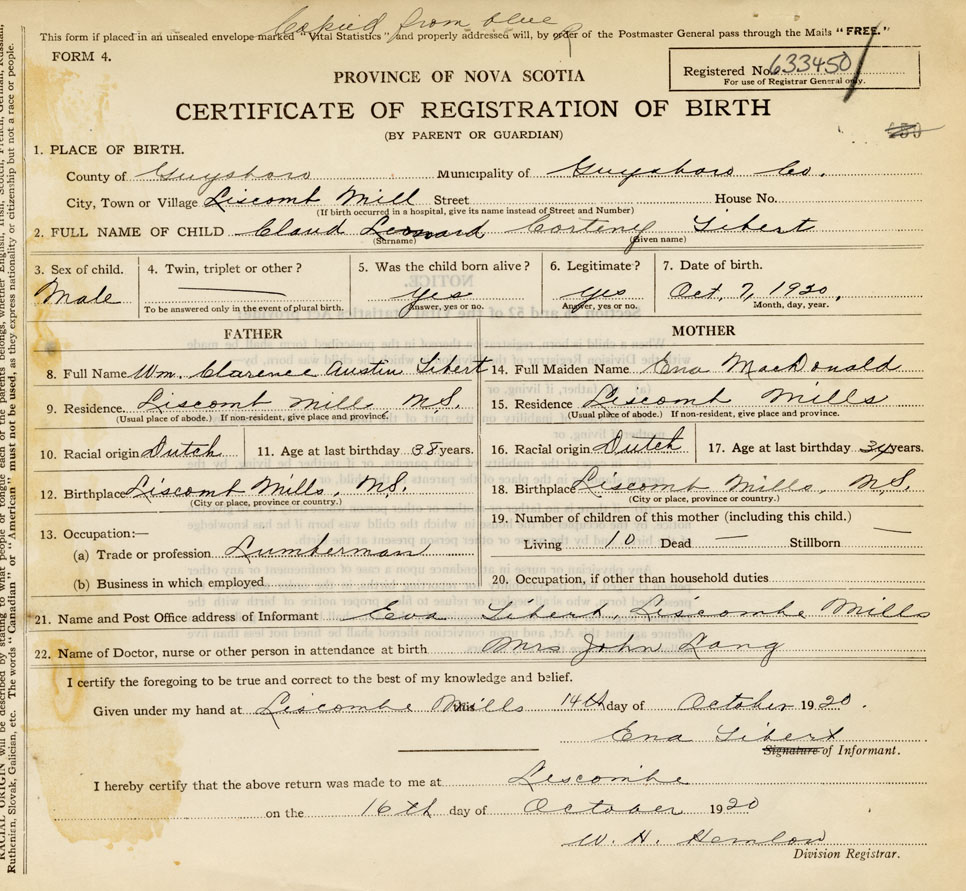 Copied from blue
This form if placed in an unsealed envelope marked "Vital Statistics" and properly addressed will, by order of the Postmaster General pass through the Mails "FREE."
FORM 4.
Registered No. 633450
For use of Registrar General only.
PROVINCE OF NOVA SCOTIA
CERTIFICATE OF REGISTRATION OF BIRTH
(BY PARENT OR GUARDIAN)
1. PLACE OF BIRTH.
County of Guysboro Municipality of Guysboro Co.
City, Town or Village Liscomb Mill Street House No.
(If birth occurred in a hospital, give its name instead of Street and Number)
2. FULL NAME OF CHILD Claud Leonard Corteny Libert
(Surname) (Given name)
3. Sex of child. 4. Twin, triplet or other? 5. Was the child born alive? 6. Legitimate? 7. Date of birth.
Male — yes yes Oct. 7, 1920.
To be answered only in the event of plural birth. Answer, yes or no. Answer, yes or no. Month, day, year.
FATHER MOTHER
8. Full Name Wm. Clarence Austin Libert 14. Full Maiden Name Ena MacDonald
9. Residence. Liscomb Mills N.S. 15. Residence Liscomb Mills
(Usual place of abode.) If non-resident, give place and province. (Usual place of abode.) If non-resident, give place and province.
10. Racial origin Dutch 11. Age at last birthday 38 years. 16. Racial origin Dutch 17. Age at last birthday 34 years.
12. Birthplace Liscomb Mills, N.S. 18. Birthplace Liscomb Mills, N.S.
(City or place, province or country.) (City or place, province or country.)
19. Number of children of this mother (including this child.)
13. Occupation:—
Living 10 Dead — Stillborn —
(a) Trade or profession Lumberman
(b) Business in which employed 20. Occupation, if other than household duties
21. Name and Post Office address of Informant Ena Libert, Liscombe Mills
22. Name of Doctor, nurse or other person in attendance at birth Mrs John Lang
I certify the foregoing to be true and correct to the best of my knowledge and belief.
Given under my hand at Liscombe Mills this 14th day of October 1920.
Ena Libert
Signature of Informant.
I hereby certify that the above return was made to me at Liscombe
on the 16th day of October 1920
W. H. Hemlow
Division Registrar.
RACIAL ORIGIN will be described by stating to what people or tongue each of the parents belongs, whether English, Irish, Scotch, French, German, Russian,
Ruthenian, Slovak, Galician, etc. The words "Canadian" or "American" must not be used, as they express nationality or citizenship but not a race or people.